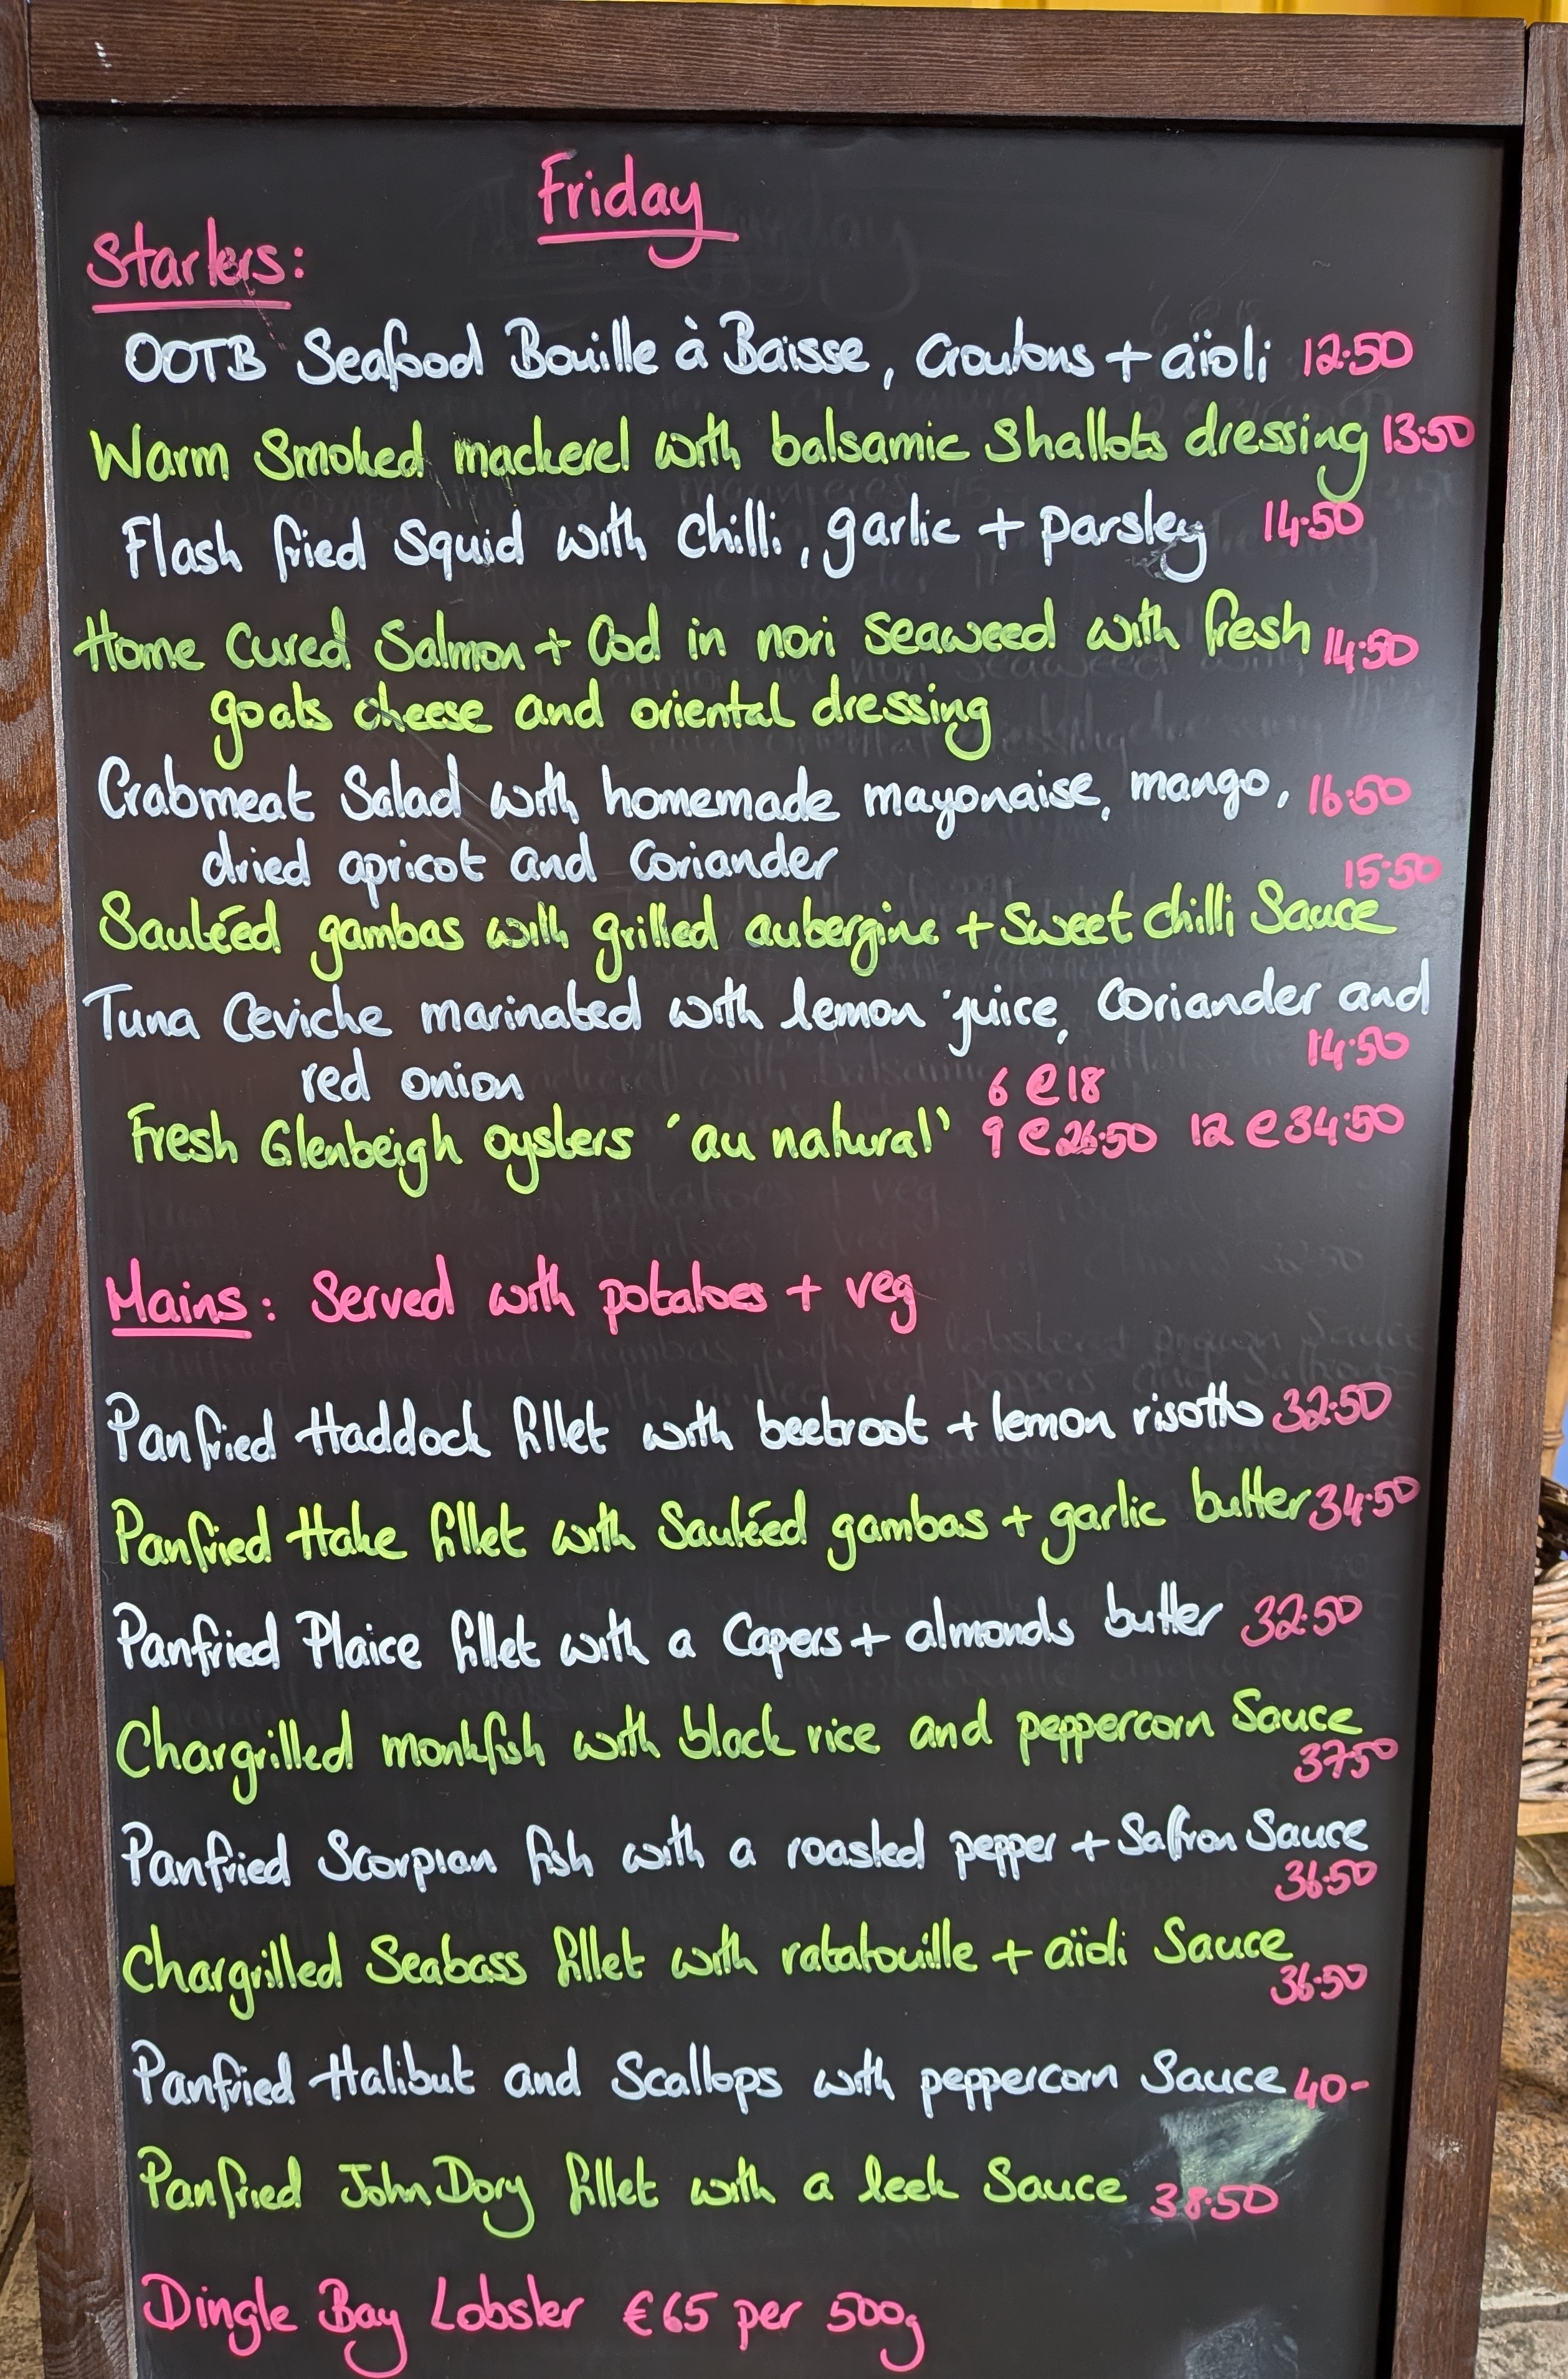 Friday
Starters:
OOTB Seafood Bouille à Baisse, Croutons + aïoli 12.50
Warm Smoked mackerel with balsamic Shallots dressing 13.50
Flash fried Squid with Chilli, garlic + parsley 14.50
Home Cured Salmon + Cod in nori Seaweed with fresh 14.50
goats cheese and oriental dressing
Crabmeat Salad with homemade mayonaise, mango, 16.50
dried apricot and Coriander
15.50
Sautéed gambas with grilled aubergine + Sweet Chilli Sauce
Tuna Ceviche marinated with lemon juice, Coriander and
14.50
red onion
6 @ 18
Fresh Glenbeigh oysters 'au natural' 9 @ 26.50 12 @ 34.50
Mains: Served with potatoes + veg
Panfried Haddock fillet with beetroot + lemon risotto 32.50
Panfried Hake fillet with Sautéed gambas + garlic butter 34.50
Panfried Plaice fillet with a Capers + almonds butter 32.50
Chargrilled monkfish with black rice and peppercorn Sauce
37.50
Panfried Scorpian fish with a roasted pepper + Safron Sauce
36.50
Chargrilled Seabass fillet with ratatouille + aïoli Sauce
36.50
Panfried Halibut and Scallops with peppercorn Sauce 40-
Panfried John Dory fillet with a leek Sauce 38.50
Dingle Bay Lobster €65 per 500g